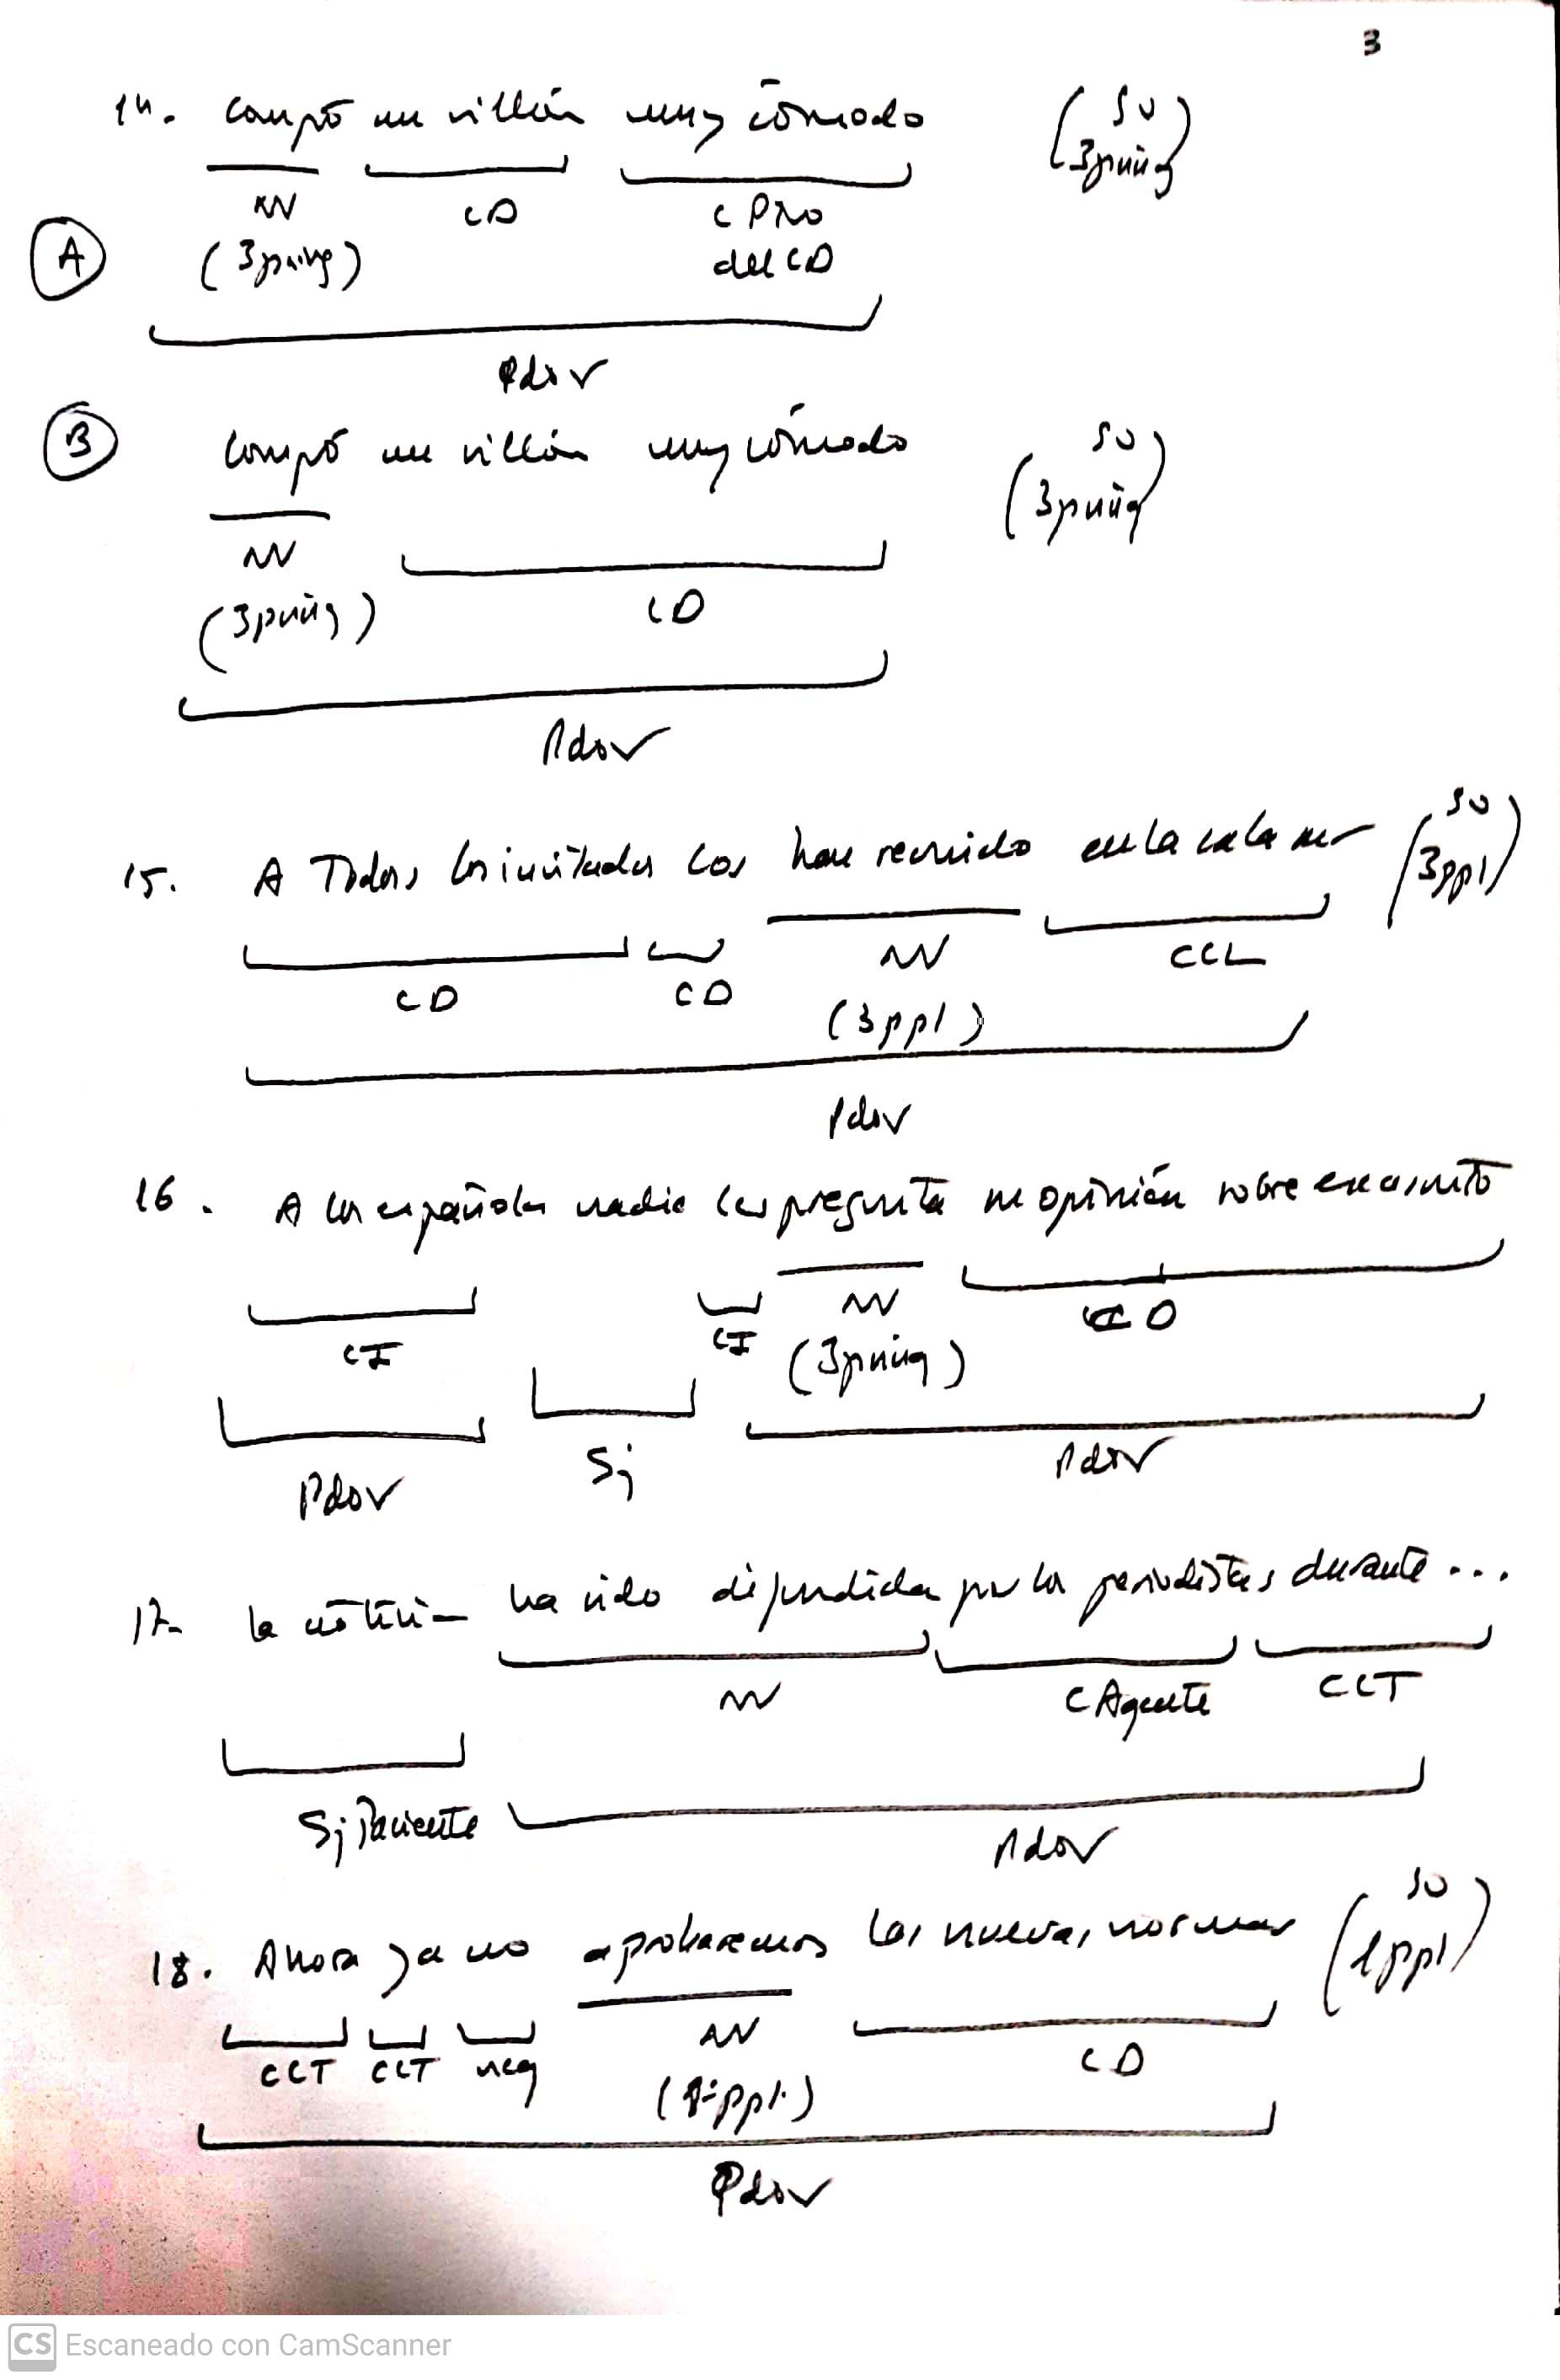 3
14. Compró un sillón muy cómodo (SO 3psing)
NV CD CPvo
(A) (3psing) del CD
PdoV
(B) Compró un sillón muy cómodo (SO 3psing)
NV CD
(3psing)
PdoV
15. A Todos los invitados los han reunido en la sala (SO 3ppl)
CD CD NV CCL
(3ppl)
PdoV
16. A los españoles nadie les pregunta su opinión sobre ese asunto
CI CI NV CD
(3psing)
PdoV Sj PdoV
17. la noticia ha sido difundida por los periodistas durante...
NV CAgente CCT
Sj Paciente PdoV
18. Ahora ya no aprobaremos las nuevas normas (SO 1ppl)
CCT CCT neg NV CD
(1ªppl.)
PdoV
CS Escaneado con CamScanner